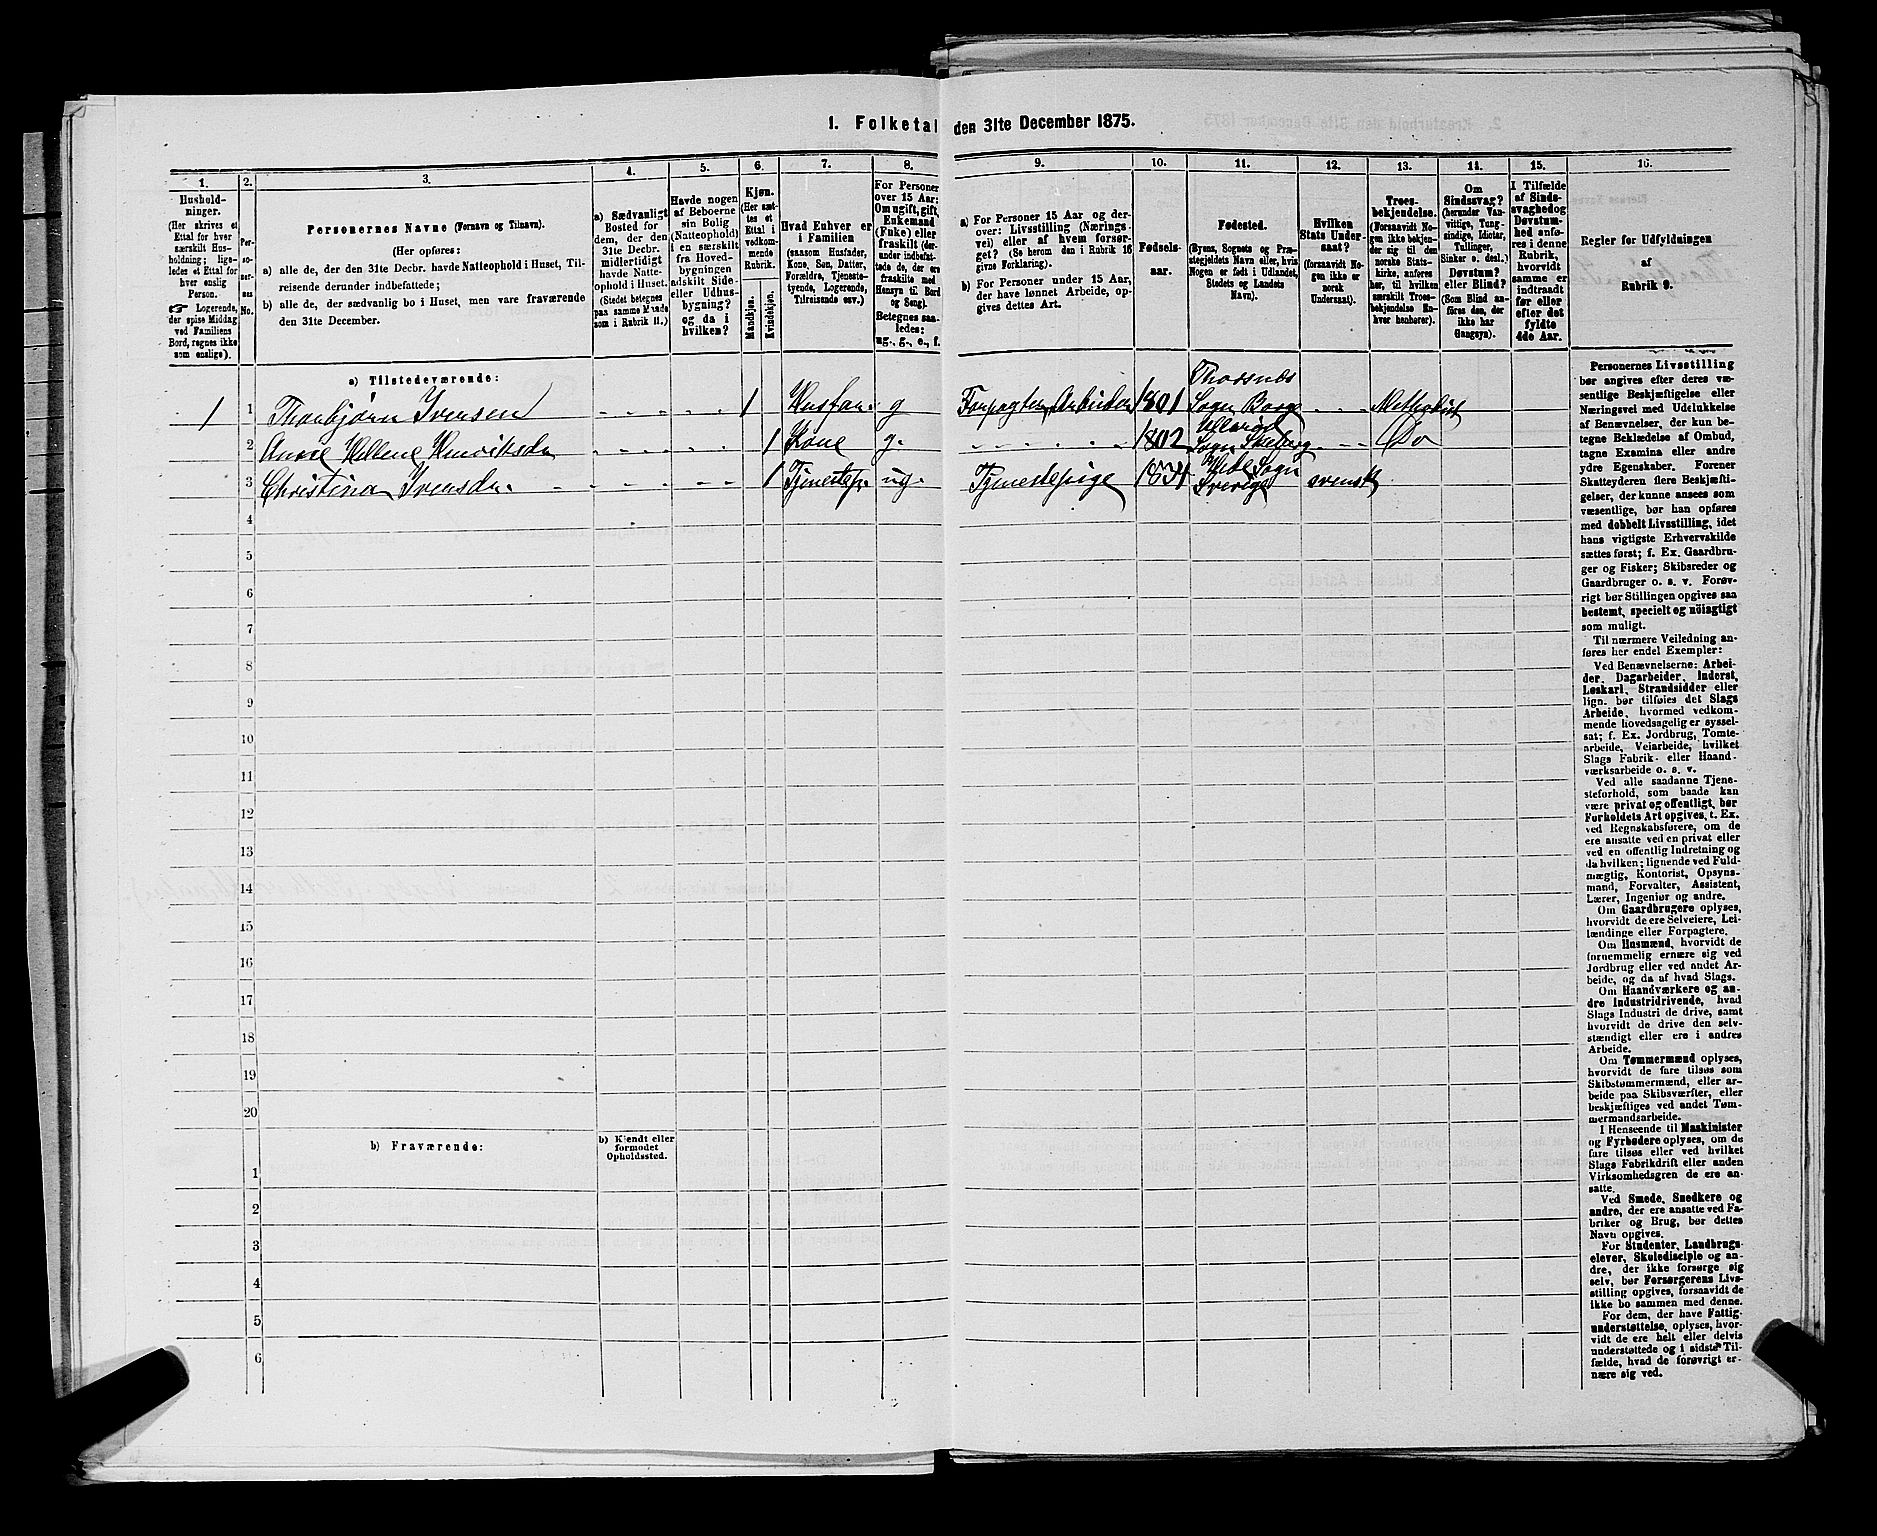 1. Folketal den 31te December 1875.
1. 2. 3. 4. 5. 6. 7. 8. 9. 10. 11. 12. 13. 14. 15. 16.
Hushold-
ninger.
(Her skrives et
Ettal for hver
særskilt Hus-
holdning; lige-
ledes et Ettal for
hver enslig
Person.
☛ Logerende,
der spise Middag
ved Familiens
Bord, regnes ikke
som enslige).
Per-
so-
ner-
nes
No.
Personernes Navne (Fornavn og Tilnavn).
(Her opføres:
a) alle de, der den 31te Decbr. havde Natteophold i Huset, Til-
reisende derunder indbefattede;
b) alle de, der sædvanlig bo i Huset, men vare fraværende
den 31te December.
a) Sædvanligt
Bosted for
dem, der den
31te Decbr.
midlertidigt
havde Natte-
ophold i Huset.
(Stedet betegnes
paa samme Maade
som i Rubrik 11.)
Havde nogen
af Beboerne
sin Bolig
(Natteophold)
i en særskilt
fra Hoved-
bygningen
adskilt Side-
eller Udhus-
bygning?
og da i
hvilken?
Kjøn.
(Her sæt-
tes et
Ettal i
vedkom-
mende
Rubrik.
Mandkjøn.
Kvindekjøn.
Hvad Enhver er
i Familien
(saasom Husfader,
Kone, Søn, Datter,
Forældre, Tjeneste-
tyende, Logerende,
Tilreisende osv.)
For Personer
over 15 Aar:
Om ugift, gift,
Enkemand
(Enke) eller
fraskilt (der-
under indbefat-
tede de, der ere
fraskilte med
Hensyn til Bord
og Seng).
Betegnes saa-
ledes:
ug., g., e., f.
a) For Personer 15 Aar og der-
over: Livsstilling (Nærings-
vei) eller af hvem forsør-
get? (Se herom den i Rubrik 16
givne Forklaring).
b) For Personer under 15 Aar,
der have lønnet Arbeide, op-
gives dettes Art.
Fødsels-
aar.
Fødested.
(Byens, Sognets og Præ-
stegjeldets Navn eller, hvis
Nogen er født i Udlandet,
Stedets og Landets
Navn).
Hvilken
Stats Under-
saat?
(forsaavidt No-
gen ikke er
norsk
Undersaat).
Troes-
bekjendelse.
(Forsaavidt No-
gen ikke bekjen-
der sig til den
norske Stats-
kirke, anføres
her, til hvilken
særskilt Troes-
bekjendelse En-
hver henhører).
Om
Sindssvag?
(herunder Van-
vittige, Tung-
sindige, Idioter,
Tullinger,
Sinker o. desl.)
Døvstum?
eller Blind?
(Som Blind an-
føres den, der
ikke har
Gangsyn).
I Tilfælde
af Sinds-
svaghed og
Døvstum-
hed anfø-
res i denne
Rubrik,
hvorvidt
samme er
indtraadt
før eller
efter det
fyldte
4de Aar.
Regler for Udfyldningen
af
Rubrik 9.
a) Tilstedeværende:
1 1 Thorbjørn Ivensen 1 Husfar. g Forpagter, Arbeider 1801 Thorsnæs Sogn Borge Methodist
2 Anne Hellene Henriksdr 1 Kone g. 1802 Ullerød Sogn Skeberg Do
3 Christina Ivensdr. 1 Tjenestep. ug. Tjenestepige 1834 Hede Sogn Sverige svensk
4
5
6
7
8
9
10
11
12
13
14
15
16
17
18
19
20
b) Fraværende:
b) Kjendt eller
formodet
Opholdssted.
1
2
3
4
5
6
Personernes Livsstilling
bør angives efter deres væ-
sentlige Beskjæftigelse eller
Næringsvei med Udelukkelse
af Benævnelser, der kun be-
tegne Beklædelse af Ombud,
tagne Examina eller andre
ydre Egenskaber. Forener
Skatteyderen flere Beskjæfti-
gelser, der kunne ansees som
væsentlige, bør han opføres
med dobbelt Livsstilling, idet
hans vigtigste Erhvervskilde
sættes først; f. Ex. Gaardbru-
ger og Fisker; Skibsreder og
Gaardbruger o. s. v. Forøv-
rigt bør Stillingen opgives saa
bestemt, specielt og nöiagtigt
som muligt.
Til nærmere Veiledning an-
føres her endel Exempler:
Ved Benævnelserne: Arbei-
der, Dagarbeider, Inderst,
Løskarl, Strandsidder eller
lign. bør tilføies det Slags
Arbeide, hvormed vedkom-
mende hovedsagelig er syssel-
sat; f. Ex. Jordbrug, Tomte-
arbeide, Veiarbeide, hvilket
Slags Fabrik- eller Haand-
værksarbeide o. s. v.
Ved alle saadanne Tjene-
steforhold, som baade kan
være privat og offentligt, bør
Forholdets Art opgives, t. Ex.
ved Regnskabsførere, om de
ere ansatte ved en privat eller
ved en offentlig Indretning og
da hvilken; lignende ved Fuld-
mægtig, Kontorist, Opsyns-
mand, Forvalter, Assistent,
Lærer, Ingeniør og andre.
Om Gaardbrugere oplyses,
hvorvidt de ere Selveiere, Lei-
lændinge eller Forpagtere.
Om Husmænd, hvorvidt de
fornemmelig ernære sig ved
Jordbrug eller ved andet Ar-
beide, og da af hvad Slags.
Om Haandværkere og an-
dre Industridrivende, hvad
Slags Industri de drive, samt
hvorvidt de drive den selv-
stændigt eller ere i andres
Arbeide.
Om Tømmermænd oplyses,
hvorvidt de fare tilsøs som
Skibstømmermænd, eller ar-
beide paa Skibsværfter, eller
beskjæftiges ved andet Tøm-
mermandsarbeide.
I Henseende til Maskinister
og Fyrbødere oplyses, om de
fare tilsøs eller ved hvilket
Slags Fabrikdrift eller anden
Virksomhedsgren de ere an-
satte.
Ved Smede, Snedkere og
andre, der ere ansatte ved Fa-
briker og Brug, bør dettes
Navn opgives.
For Studenter, Landbrugs-
elever, Skoledisciple og an-
dre, der ikke forsørge sig
selv, bør Forsørgerens Livs-
stilling opgives, forsaavidt de
ikke bo sammen med denne.
For dem, der have Fattig-
understøttelse, oplyses, hvor-
vidt de ere helt eller delvis
understøttede og i sidste Til-
fælde, hvad de forøvrigt er-
nære sig ved.